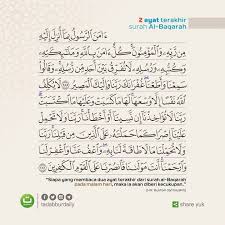 2 ayat terakhir
surah Al-Baqarah
ءَامَنَ ٱلرَّسُولُ بِمَآ أُنزِلَ إِلَيْهِ
مِن رَّبِّهِۦ وَٱلْمُؤْمِنُونَ كُلٌّ ءَامَنَ بِٱللَّهِ وَمَلَٰٓئِكَتِهِۦ
وَكُتُبِهِۦ وَرُسُلِهِۦ لَا نُفَرِّقُ بَيْنَ أَحَدٍ مِّن رُّسُلِهِۦ وَقَالُوا۟
سَمِعْنَا وَأَطَعْنَا غُفْرَانَكَ رَبَّنَا وَإِلَيْكَ ٱلْمَصِيرُ ٢٨٥ لَا يُكَلِّفُ
ٱللَّهُ نَفْسًا إِلَّا وُسْعَهَا لَهَا مَا كَسَبَتْ وَعَلَيْهَا مَا ٱكْتَسَبَتْ
رَبَّنَا لَا تُؤَاخِذْنَآ إِن نَّسِينَآ أَوْ أَخْطَأْنَا رَبَّنَا وَلَا تَحْمِلْ
عَلَيْنَآ إِصْرًا كَمَا حَمَلْتَهُۥ عَلَى ٱلَّذِينَ مِن قَبْلِنَا رَبَّنَا
وَلَا تُحَمِّلْنَا مَا لَا طَاقَةَ لَنَا بِهِۦ وَٱعْفُ عَنَّا وَٱغْفِرْ لَنَا
وَٱرْحَمْنَآ أَنتَ مَوْلَىٰنَا فَٱنصُرْنَا عَلَى ٱلْقَوْمِ ٱلْكَٰفِرِينَ ٢٨٦
"Siapa yang membaca dua ayat terakhir dari surah al-Baqarah
pada malam hari, maka ia akan diberi kecukupan."
tadabburdaily
share yuk